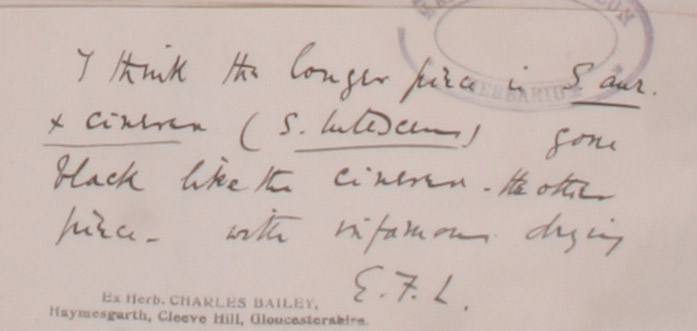 I think the longer piece is S aur.
x cinerea (S. lutescens) gone
black like the cinerea - the other
piece - with infamous drying
E. F. L.
HERBARIUM
Ex Herb. CHARLES BAILEY,
Haymesgarth, Cleeve Hill, Gloucestershire.